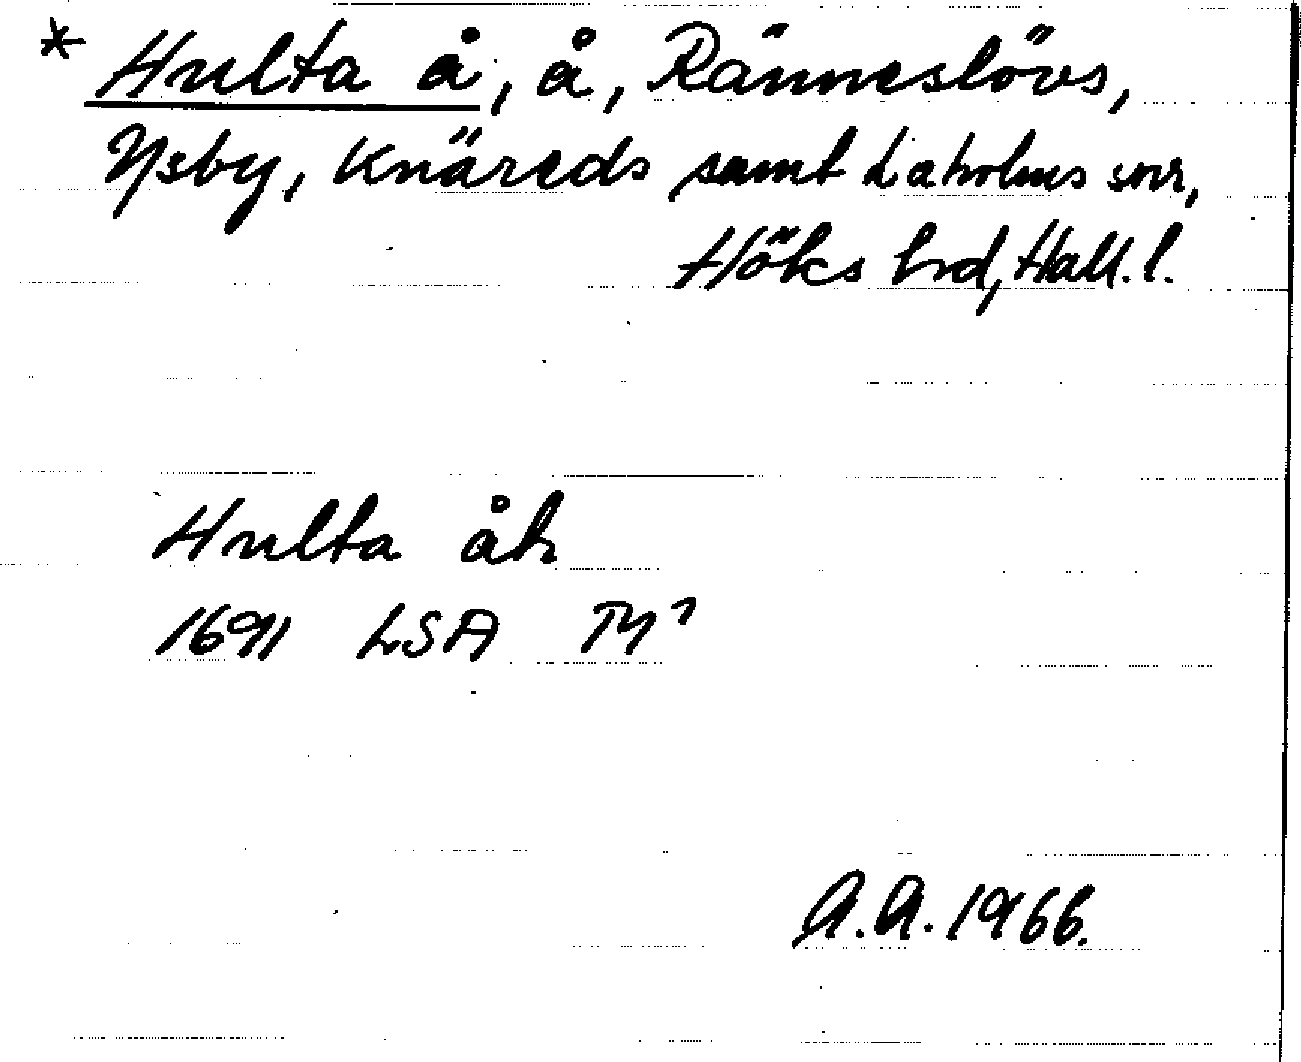 * Hulta å, å, Ränneslövs,
Ysby, Knäreds samt Laholms snr,
Höks hrd, Hall. l.
Hulta åh
1691 LSA
A.A. 1966.